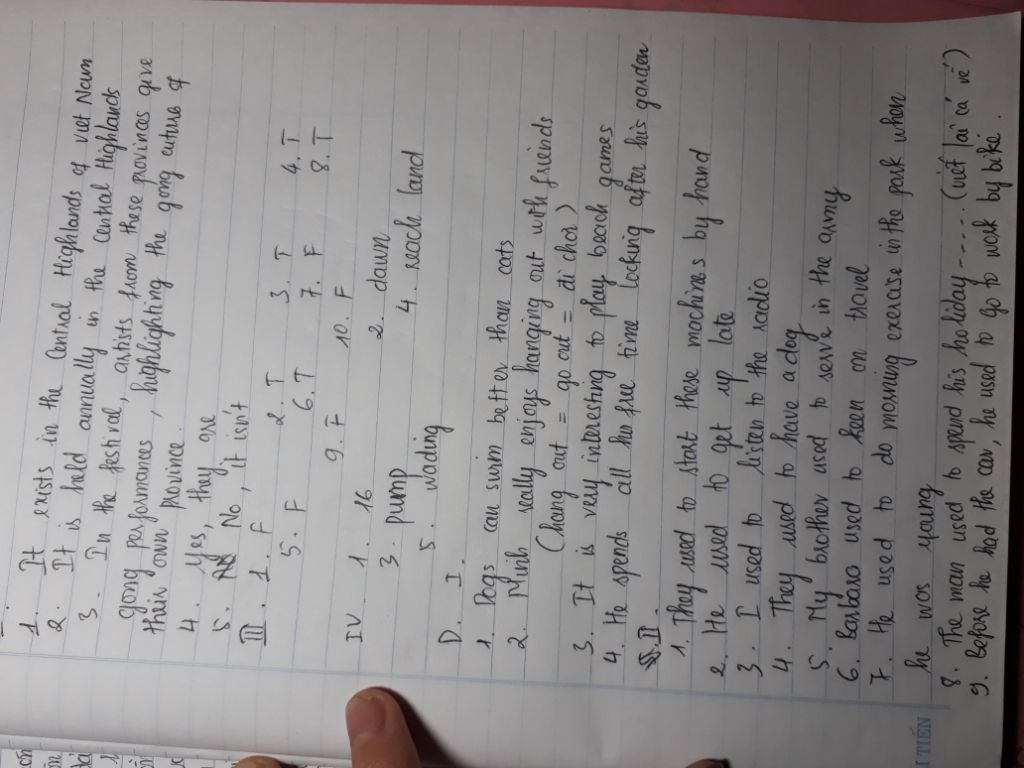 1. It exists in the Central Highlands of Viet Nam
2. It is held annually in the Central Highlands
3. In the festival, artists from these provinces give
gong performances, highlighting the gong culture of
their own province.
4. Yes, they are
5. No, it isn't
III. 1. F 2. T 3. T 4. T
5. F 6. T 7. F 8. T
9. F 10. F
IV 1. 16 2. dawn
3. pump 4. reach land
5. wading
D. I.
1. Dogs can swim better than cats
2. Minh really enjoys hanging out with friends
(hang out = go out = đi chơi)
3. It is very interesting to play beach games
4. He spends all his free time looking after his garden
II.
1. They used to start these machines by hand
2. He used to get up late
3. I used to listen to the radio
4. They used to have a dog
5. My brother used to serve in the army
6. Barbara used to keen on travel
7. He used to do morning exercise in the park when
he was young
8. The man used to spend his holiday ..... (viết lại cả vế)
9. Before he had the car, he used to go to work by bike.
I TIẾN